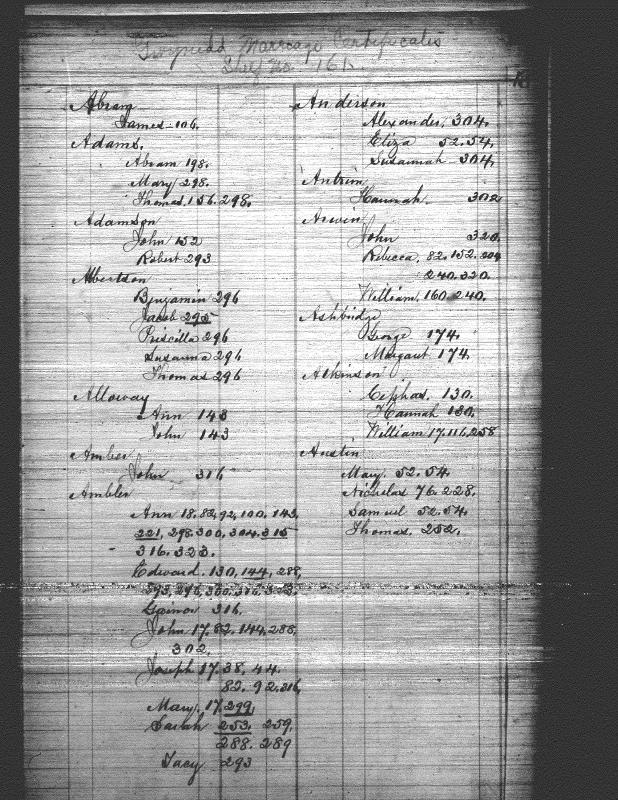 Gwynedd Marreage Certificates
Shelf No. 161.
Abram
James 106.
Adams.
Abram 198.
Mary 298.
Thomas. 156. 298.
Adamson
John 152
Robert 293
Albertson
Benjamin 296
Jacob 295
Priscilla 296
Susanna 296
Thomas 296
Alloway
Ann 143
John 143
Amber
John 316
Ambler
Ann 18. 82, 92, 100, 143,
221, 298. 300, 304. 315
316. 323.
Edward. 130, 144, 288,
293, 296, 300, 316, 323.
Gainor 316.
John 17. 82. 144. 288.
302.
Joseph 17. 38, 44.
82. 92. 316,
Mary. 17. 299,
Sarah 253. 259,
288. 289
Tacy 293
Anderson
Alexander, 304.
Eliza 52. 54,
Susannah 304,
Antrim
Hannah. 302
Arwin
John 320.
Rebecca, 82. 152.
240. 320.
William, 160. 240.
Ashbridge
George 174.
Margaret 174.
Atkinson
Cephas. 130.
Hannah 130,
William 17. 116, 258
Austin
Mary. 52. 54.
Nicholas 76. 228.
Samuel 52. 54.
Thomas. 252.